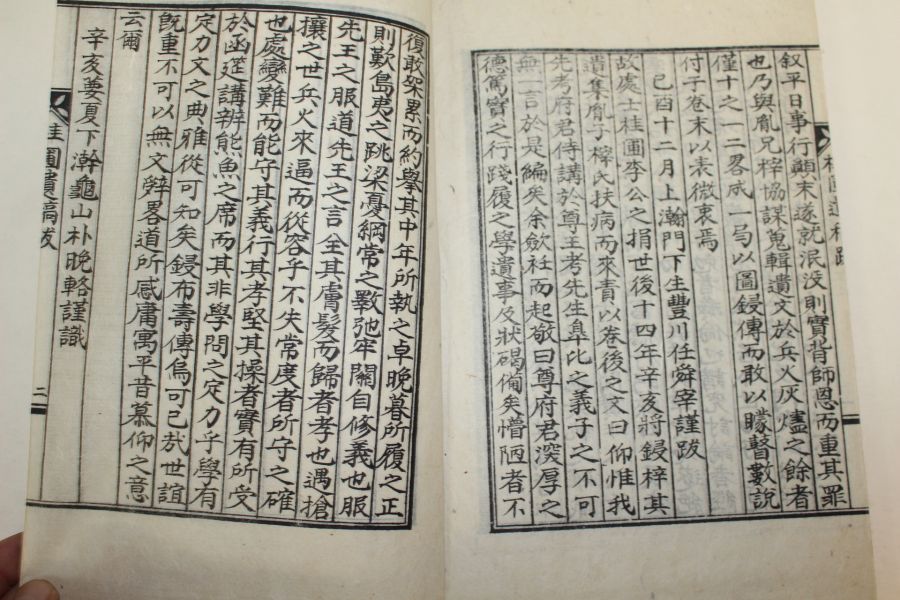 桂圃遺稿跋
叙平日事行顛末遂就泯没則實背師恩而重其罪
也乃與胤兄梓協謀蒐輯遺文於兵火灰燼之餘者
僅十之一二畧成一弓以圖鋟傳而敢以矇瞽數說
付于卷末以表微衷焉
己酉十二月上澣門下生豐川任舜宰謹跋
故處士桂圃李公之捐世後十四年辛亥將鋟梓其
遺集胤子梓氏扶病而來責以卷後之文曰仰惟我
先考府君侍講於尊王考先生皐比之義子之不可
無一言於是編矣余斂衽而起敬曰尊府君深厚之
德篤實之行踐履之學遺事及狀碣備矣懵陋者不
復敢架累而約擧其中年所執之卓晚暮所履之正
則歎島夷之跳梁憂綱常之斁弛牢關自修義也服
先王之服道先王之言全其膚髮而歸者孝也遇搶
攘之世兵火來逼而從容乎不失常度者所守之確
也處變難而能守其義行其孝堅其操者實有所受
於函筵講辨熊魚之席而其非學問之定力乎學有
定力文之典雅從可知矣鋟布壽傳烏可已哉世誼
旣重不可以無文辤畧道所感庸寓平昔慕仰之意
云爾
辛亥蔓夏下澣龜山朴晚輅謹識
桂圃遺稿跋
二